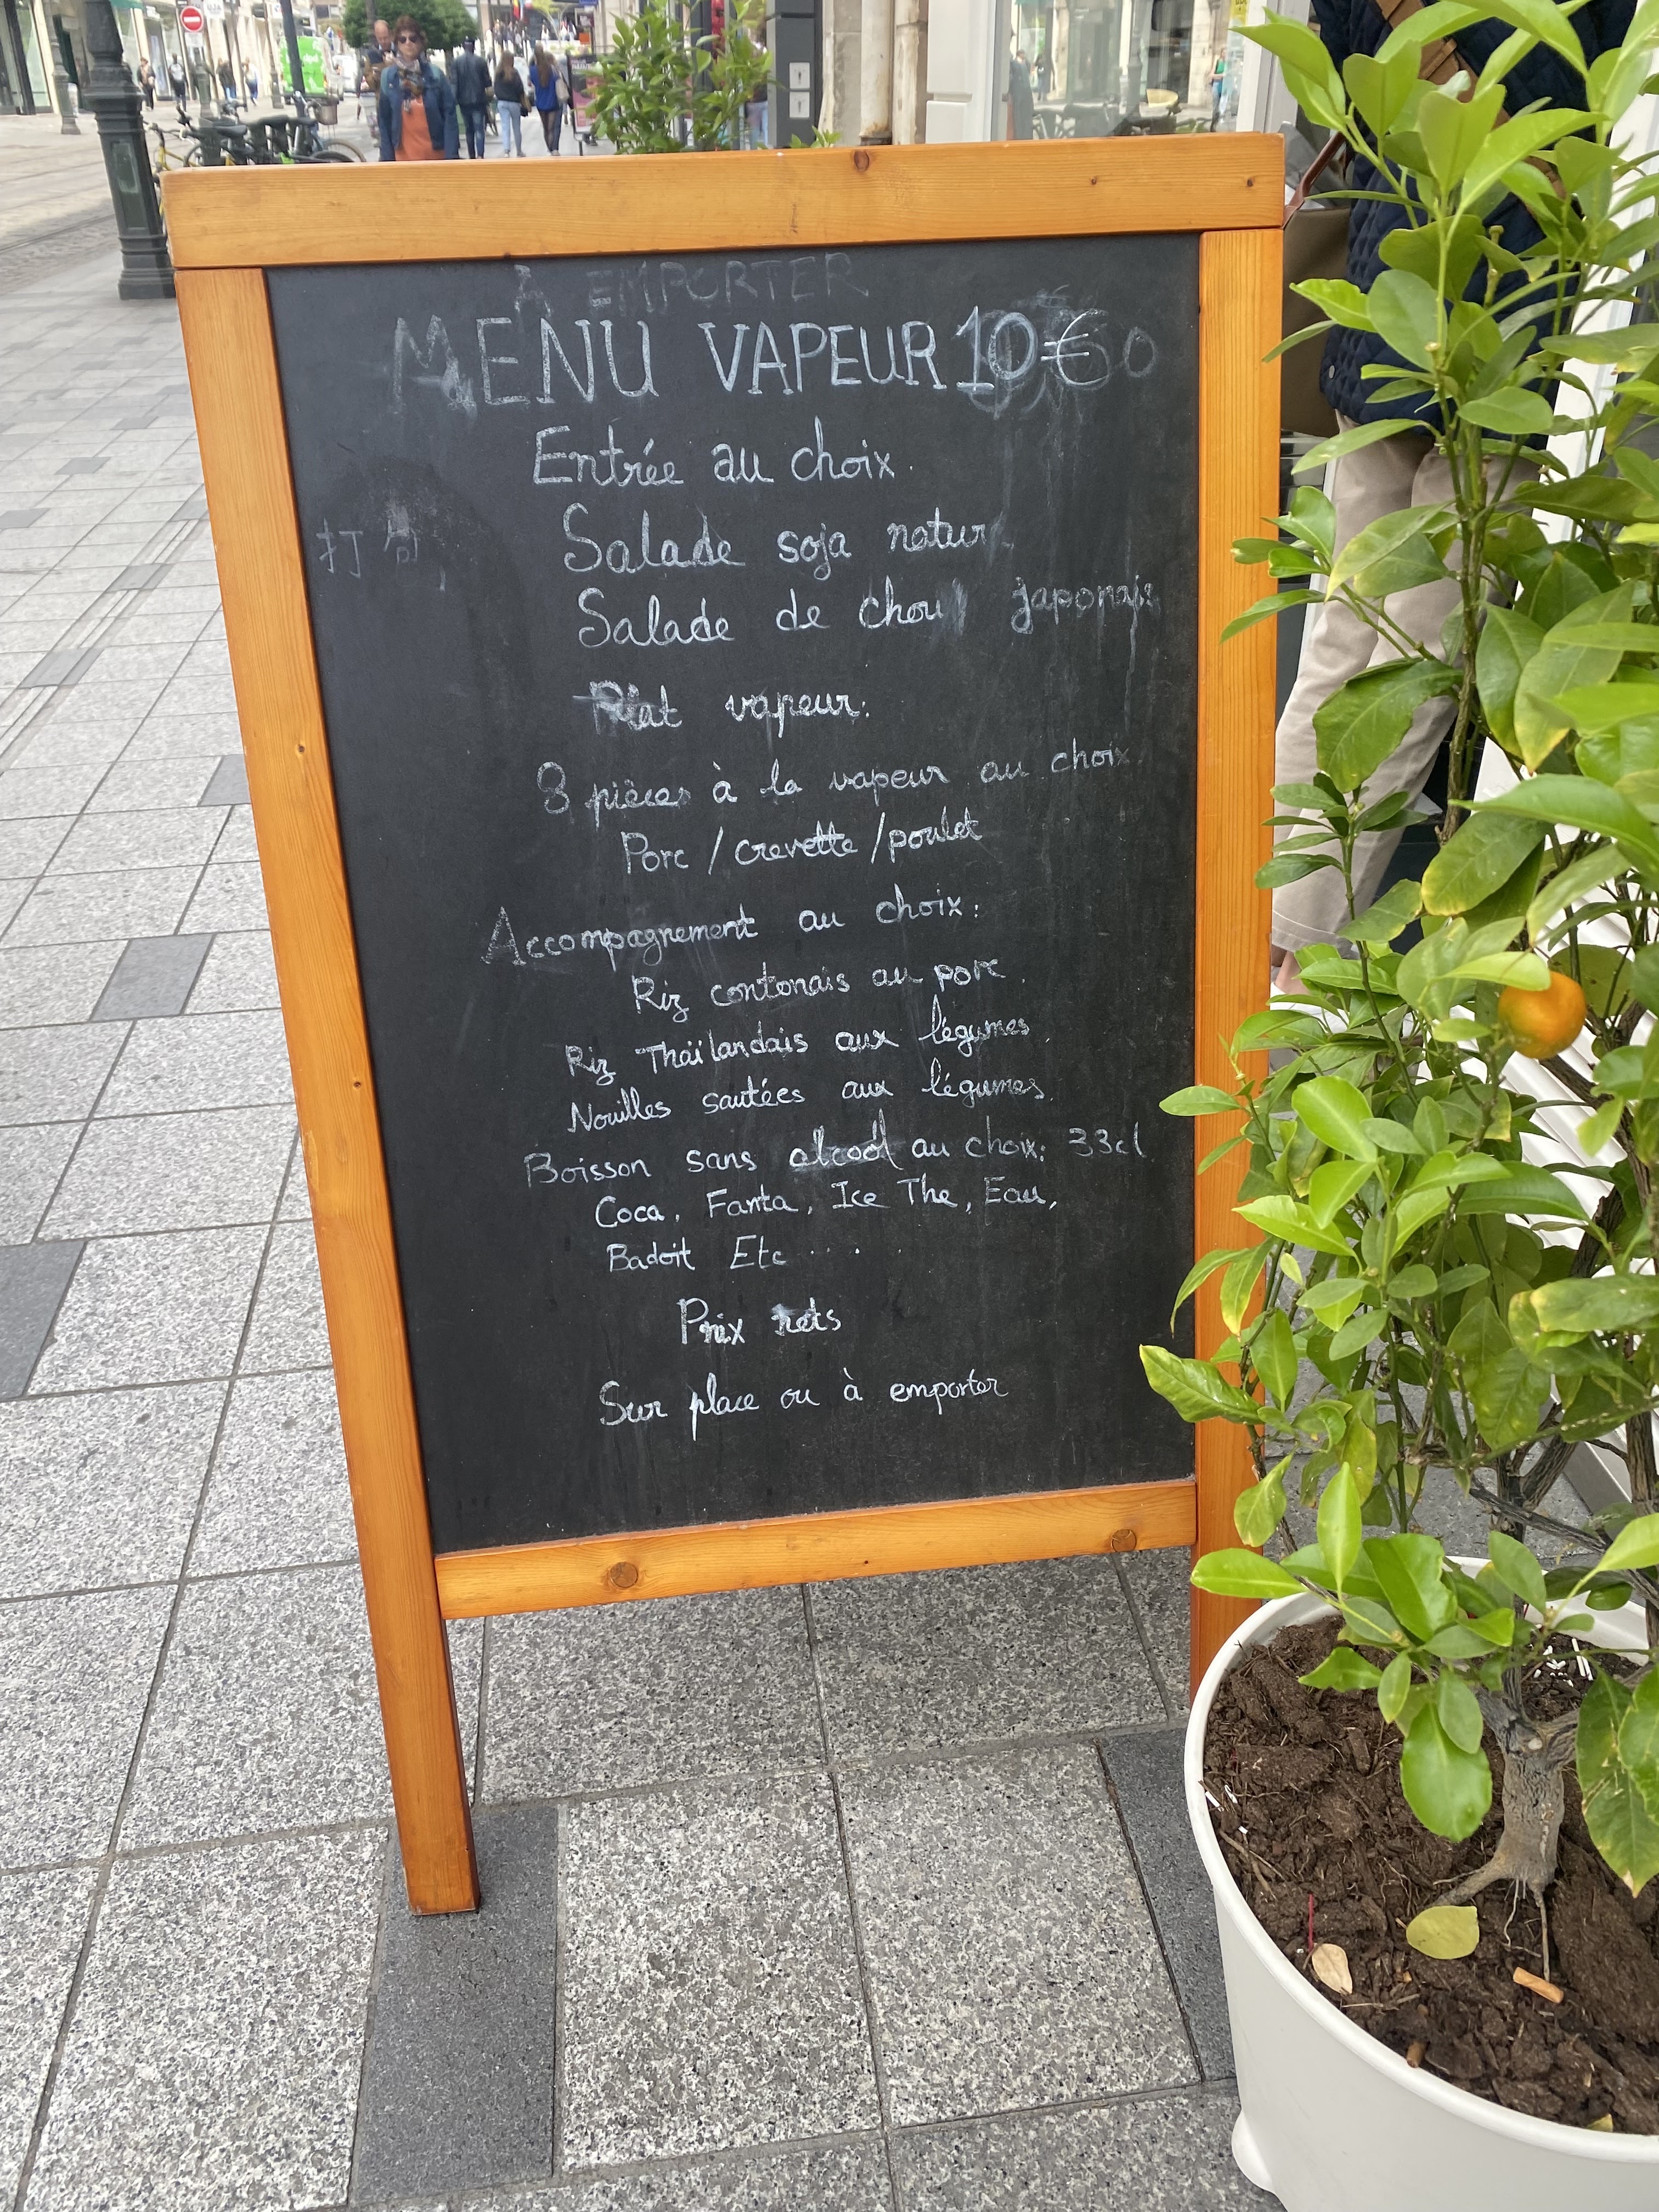 A EMPORTER
MENU VAPEUR 10€
Entrée au choix.
Salade soja natur
Salade de chou japonais
Plat vapeur:
8 pièces à la vapeur au choix.
Porc / crevette / poulet
Accompagnement au choix:
Riz contonais au porc.
Riz Thaïlandais aux légumes.
Nouilles sautées aux légumes.
Boisson sans alcool au choix: 33cl.
Coca, Fanta, Ice The, Eau,
Badoit Etc ....
Prix nets
Sur place ou à emporter